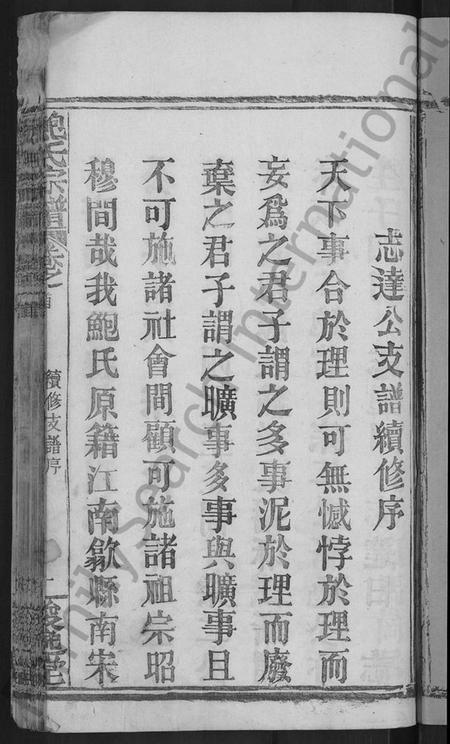 志達公支譜續修序
天下事合於理則可無憾悖於理而
妄爲之君子謂之多事泥於理而廢
棄之君子謂之曠事多事與曠事且
不可施諸社會間顧可施諸祖宗昭
穆間哉我鮑氏原籍江南歙縣南宋
鮑氏宗譜
續修支譜序
二
Family Search International